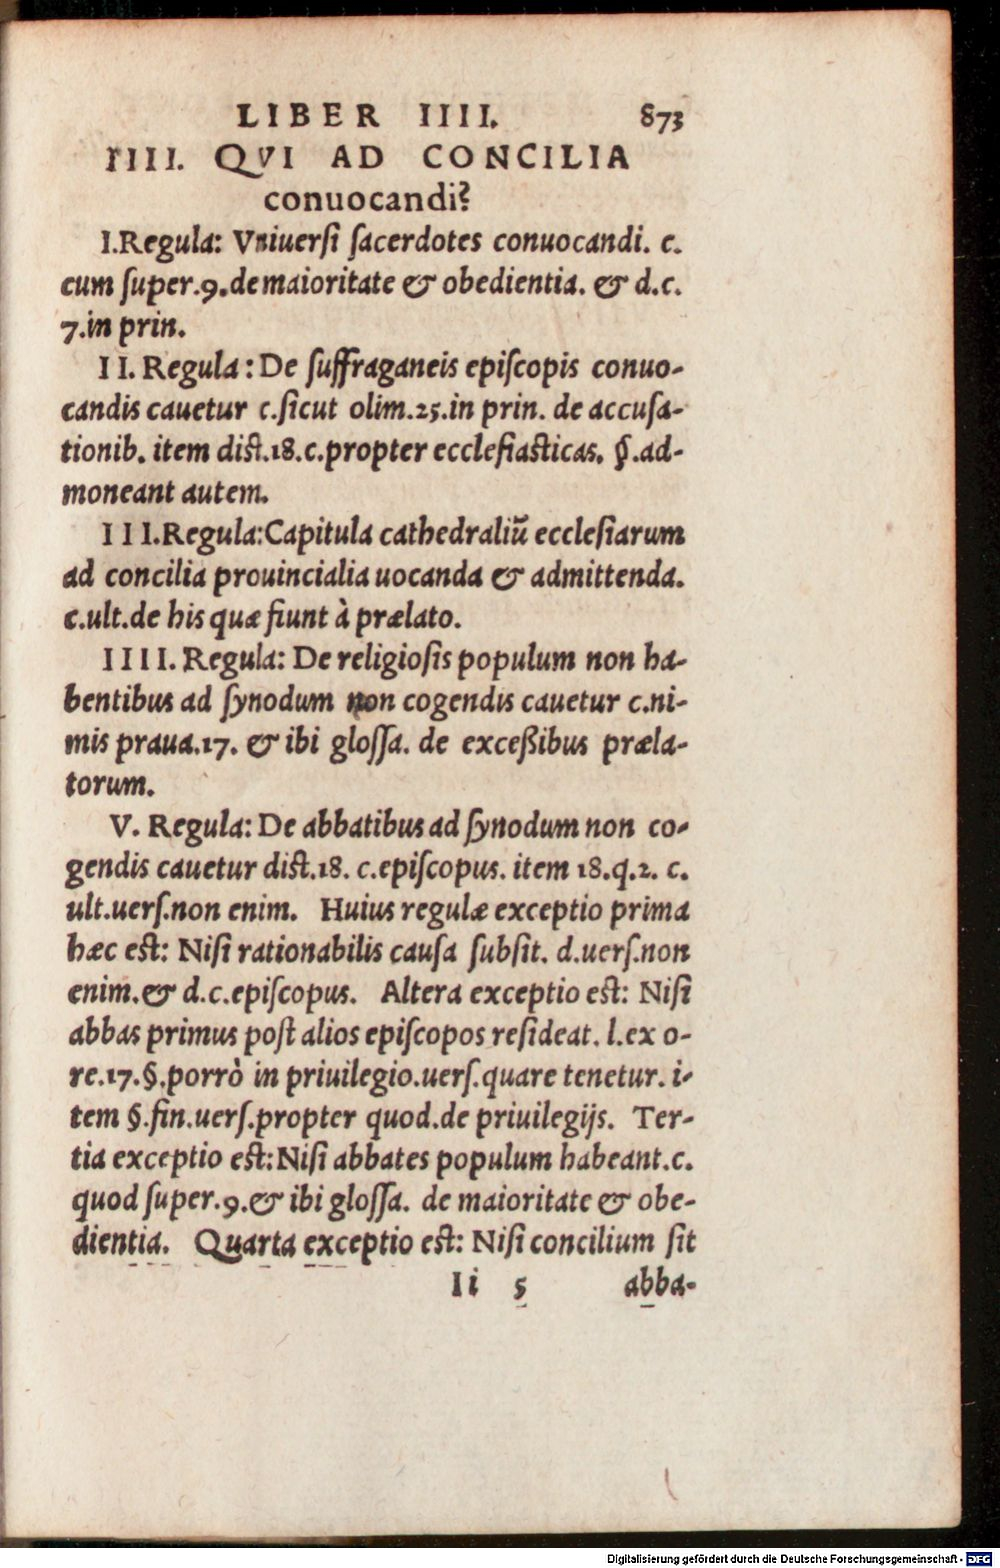 LIBER IIII. 873
IIII. QVI AD CONCILIA
conuocandi?
I.Regula: Vniuersi sacerdotes conuocandi. c.
cum super.9.de maioritate & obedientia. & d.c.
7.in prin.
II. Regula: De suffraganeis episcopis conuo-
candis cauetur c.sicut olim.25.in prin. de accusa-
tionib. item dist.18.c.propter ecclesiasticas. §.ad-
moneant autem.
III.Regula:Capitula cathedraliũ ecclesiarum
ad concilia prouincialia uocanda & admittenda.
c.ult.de his quæ fiunt à prælato.
IIII. Regula: De religiosis populum non ha-
bentibus ad synodum non cogendis cauetur c.ni-
mis praua.17. & ibi glossa. de exceßibus præla-
torum.
V. Regula: De abbatibus ad synodum non co-
gendis cauetur dist.18. c.episcopus. item 18.q.2. c.
ult.uers.non enim. Huius regulæ exceptio prima
hæc est: Nisi rationabilis causa subsit. d.uers.non
enim.& d.c.episcopus. Altera exceptio est: Nisi
abbas primus post alios episcopos resideat. l.ex o-
re.17.§.porrò in priuilegio.uers.quare tenetur. i-
tem §.fin.uers.propter quod.de priuilegijs. Ter-
tia exceptio est:Nisi abbates populum habeant.c.
quod super.9.& ibi glossa. de maioritate & obe-
dientia. Quarta exceptio est: Nisi concilium sit
Ii 5 abba-
Digitalisierung gefördert durch die Deutsche Forschungsgemeinschaft - DFG